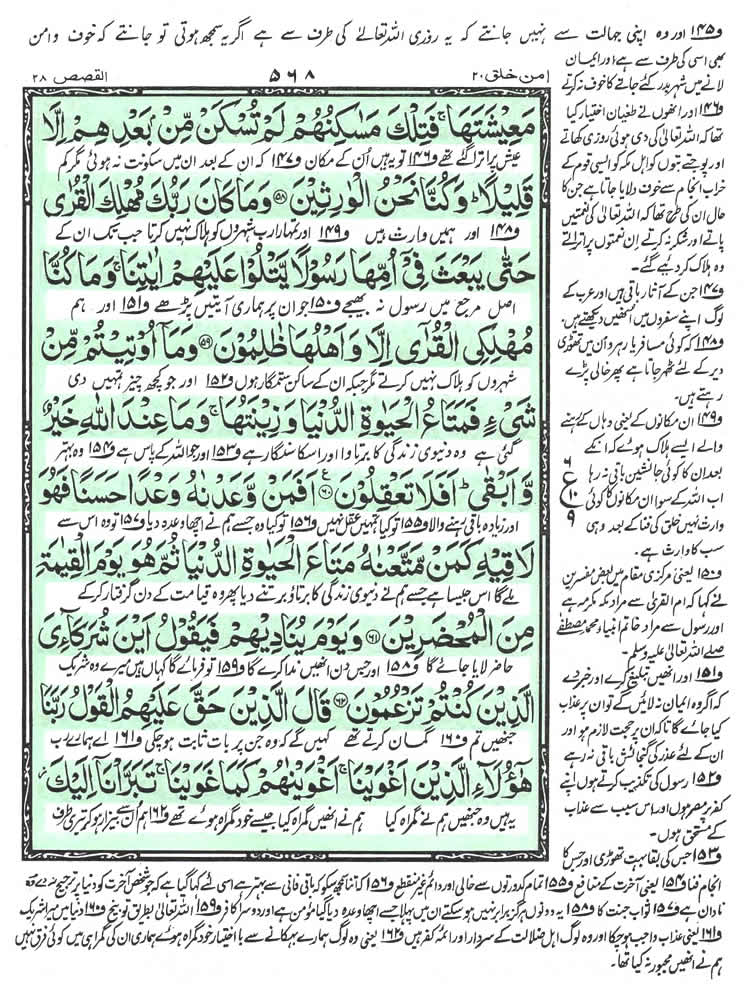 و۱۴۵ اور وہ اپنی جہالت سے نہیں جانتے کہ یہ روزی اللہ تعالیٰ کی طرف سے ہے اگر یہ سمجھ ہوتی تو جانتے کہ خوف و امن
بھی اسی کی طرف سے ہے اور ایمان
لانے میں شہر بدر کئے جانے کا خوف نہ کرتے
و۱۴۶ اور انھوں نے طغیان اختیار کیا
تھا کہ اللہ تعالیٰ کی دی ہوئی روزی کھاتے
اور پوجتے بتوں کو اہل مکہ کو ایسی قوم کے
خراب انجام سے خوف دلایا جاتا ہے جن کا
حال ان کی طرح تھا کہ اللہ تعالیٰ کی نعمتیں
پاتے اور شکر نہ کرتے ان نعمتوں پر اتراتے
وہ ہلاک کر دیئے گئے۔
و۱۴۷ جن کے آثار باقی ہیں اور عرب کے
لوگ اپنے سفروں میں انھیں دیکھتے ہیں۔
و۱۴۸ کہ کوئی مسافر یا رہرو ان میں تھوڑی
دیر کے لئے ٹھہر جاتا ہے پھر خالی پڑے
رہتے ہیں۔
و۱۴۹ ان مکانوں کے یعنی وہاں کے رہنے
والے ایسے ہلاک ہوئے کہ انکے
بعد ان کا کوئی جانشین باقی نہ رہا
اب اللہ کے سوا ان مکانوں کا کوئی
وارث نہیں خلق کی فنا کے بعد وہی
سب کا وارث ہے۔
و۱۵۰ یعنی مرکزی مقام میں بعض مفسرین
نے کہا کہ ام القریٰ سے مراد مکہ مکرمہ ہے
اور رسول سے مراد خاتم انبیاء محمد مصطفےٰ
صلے اللہ تعالیٰ علیہ وسلم۔
و۱۵۱ اور انھیں تبلیغ کرے اور خبر دے
کہ اگر وہ ایمان نہ لائیں گے تو ان پر عذاب
کیا جائے گا تاکہ ان پر حجت لازم ہو اور
ان کے لئے عذر کی گنجائش باقی نہ رہے
و۱۵۲ رسول کی تکذیب کرتے ہوں اپنے
کفر پر مصر ہوں اور اس سبب سے عذاب
کے مستحق ہوں۔
و۱۵۳ جس کی بقا بہت تھوڑی اور جس کا
امن خلق ۲۰
۵۶۸
القصص ۲۸
مَعِيْشَتَهَا ۚ فَتِلْكَ مَسٰكِنُهُمْ لَمْ تُسْكَنْ مِّنْۢ بَعْدِهِمْ اِلَّا
عیش پر اترا گئے تھے و۱۴۶ تو یہ ہیں اُن کے مکان و۱۴۷ کہ ان کے بعد ان میں سکونت نہ ہوئی مگر کم
قَلِيْلًا ؕ وَكُنَّا نَحْنُ الْوٰرِثِيْنَ ﴿۵۸﴾ وَمَا كَانَ رَبُّكَ مُهْلِكَ الْقُرٰى
و۱۴۸ اور ہمیں وارث ہیں و۱۴۹ اور تمہارا رب شہروں کو ہلاک نہیں کرتا جب تک ان کے
حَتّٰى يَبْعَثَ فِيْۤ اُمِّهَا رَسُوْلًا يَّتْلُوْا عَلَيْهِمْ اٰيٰتِنَا ۚ وَمَا كُنَّا
اصل مرجع میں رسول نہ بھیجے و۱۵۰ جو ان پر ہماری آیتیں پڑھے و۱۵۱ اور ہم
مُهْلِكِي الْقُرٰۤى اِلَّا وَاَهْلُهَا ظٰلِمُوْنَ ﴿۵۹﴾ وَمَاۤ اُوْتِيْتُمْ مِّنْ
شہروں کو ہلاک نہیں کرتے مگر جبکہ ان کے ساکن ستمگار ہوں و۱۵۲ اور جو کچھ چیز تمہیں دی
شَيْءٍ فَمَتَاعُ الْحَيٰوةِ الدُّنْيَا وَزِيْنَتُهَا ۚ وَمَا عِنْدَ اللّٰهِ خَيْرٌ
گئی ہے وہ دنیوی زندگی کا برتاوا اور اسکا سنگار ہے و۱۵۳ اور جو اللہ کے پاس ہے و۱۵۴ وہ بہتر
وَّاَبْقٰى ؕ اَفَلَا تَعْقِلُوْنَ ﴿۶۰﴾ اَفَمَنْ وَّعَدْنٰهُ وَعْدًا حَسَنًا فَهُوَ
اور زیادہ باقی رہنے والا و۱۵۵ تو کیا تمہیں عقل نہیں و۱۵۶ تو کیا وہ جسے ہم نے اچھا وعدہ دیا و۱۵۷ تو وہ اس سے
لَاقِيْهِ كَمَنْ مَّتَّعْنٰهُ مَتَاعَ الْحَيٰوةِ الدُّنْيَا ثُمَّ هُوَ يَوْمَ الْقِيٰمَةِ
ملے گا اس جیسا ہے جسے ہم نے دنیوی زندگی کا برتاؤ برتنے دیا پھر وہ قیامت کے دن گرفتار کر کے
مِنَ الْمُحْضَرِيْنَ ﴿۶۱﴾ وَيَوْمَ يُنَادِيْهِمْ فَيَقُوْلُ اَيْنَ شُرَكَآءِيَ
حاضر لایا جائے گا و۱۵۸ اور جس دن انھیں ندا کرے گا و۱۵۹ تو فرمائے گا کہاں ہیں میرے وہ شریک
الَّذِيْنَ كُنْتُمْ تَزْعُمُوْنَ ﴿۶۲﴾ قَالَ الَّذِيْنَ حَقَّ عَلَيْهِمُ الْقَوْلُ رَبَّنَا
جنھیں تم و۱۶۰ گمان کرتے تھے کہیں گے وہ جن پر بات ثابت ہو چکی و۱۶۱ اے ہمارے رب
هٰۤؤُلَآءِ الَّذِيْنَ اَغْوَيْنَا ۚ اَغْوَيْنٰهُمْ كَمَا غَوَيْنَا ۚ تَبَرَّاْنَاۤ اِلَيْكَ
یہ ہیں وہ جنھیں ہم نے گمراہ کیا ہم نے انھیں گمراہ کیا جیسے خود گمراہ ہوئے تھے و۱۶۲ ہم ان سے بیزار ہو کر تیری طرف
۶
ع
۱۰
۹
انجام فنا و۱۵۴ یعنی آخرت کے منافع و۱۵۵ تمام کدورتوں سے خالی اور دائم غیر منقطع و۱۵۶ کہ اتنا سمجھ سکو کہ باقی فانی سے بہتر ہے اسی لئے کہا گیا ہے کہ جو شخص آخرت کو دنیا پر ترجیح نہ دے وہ
نادان ہے و۱۵۷ ثواب جنت کا و۱۵۸ یہ دونوں ہرگز برابر نہیں ہو سکتے ان میں پہلا جسے اچھا وعدہ دیا گیا مؤمن ہے اور دوسرا کافر و۱۵۹ اللہ تعالیٰ بطریق توبیخ و۱۶۰ دنیا میں میرا شریک
و۱۶۱ یعنی عذاب واجب ہو چکا اور وہ لوگ اہل ضلالت کے سردار اور ائمہ کفر ہیں و۱۶۲ یعنی وہ لوگ ہمارے بہکانے سے با اختیار خود گمراہ ہوئے ہماری ان کی گمراہی میں کوئی فرق نہیں
ہم نے انھیں مجبور نہ کیا تھا۔